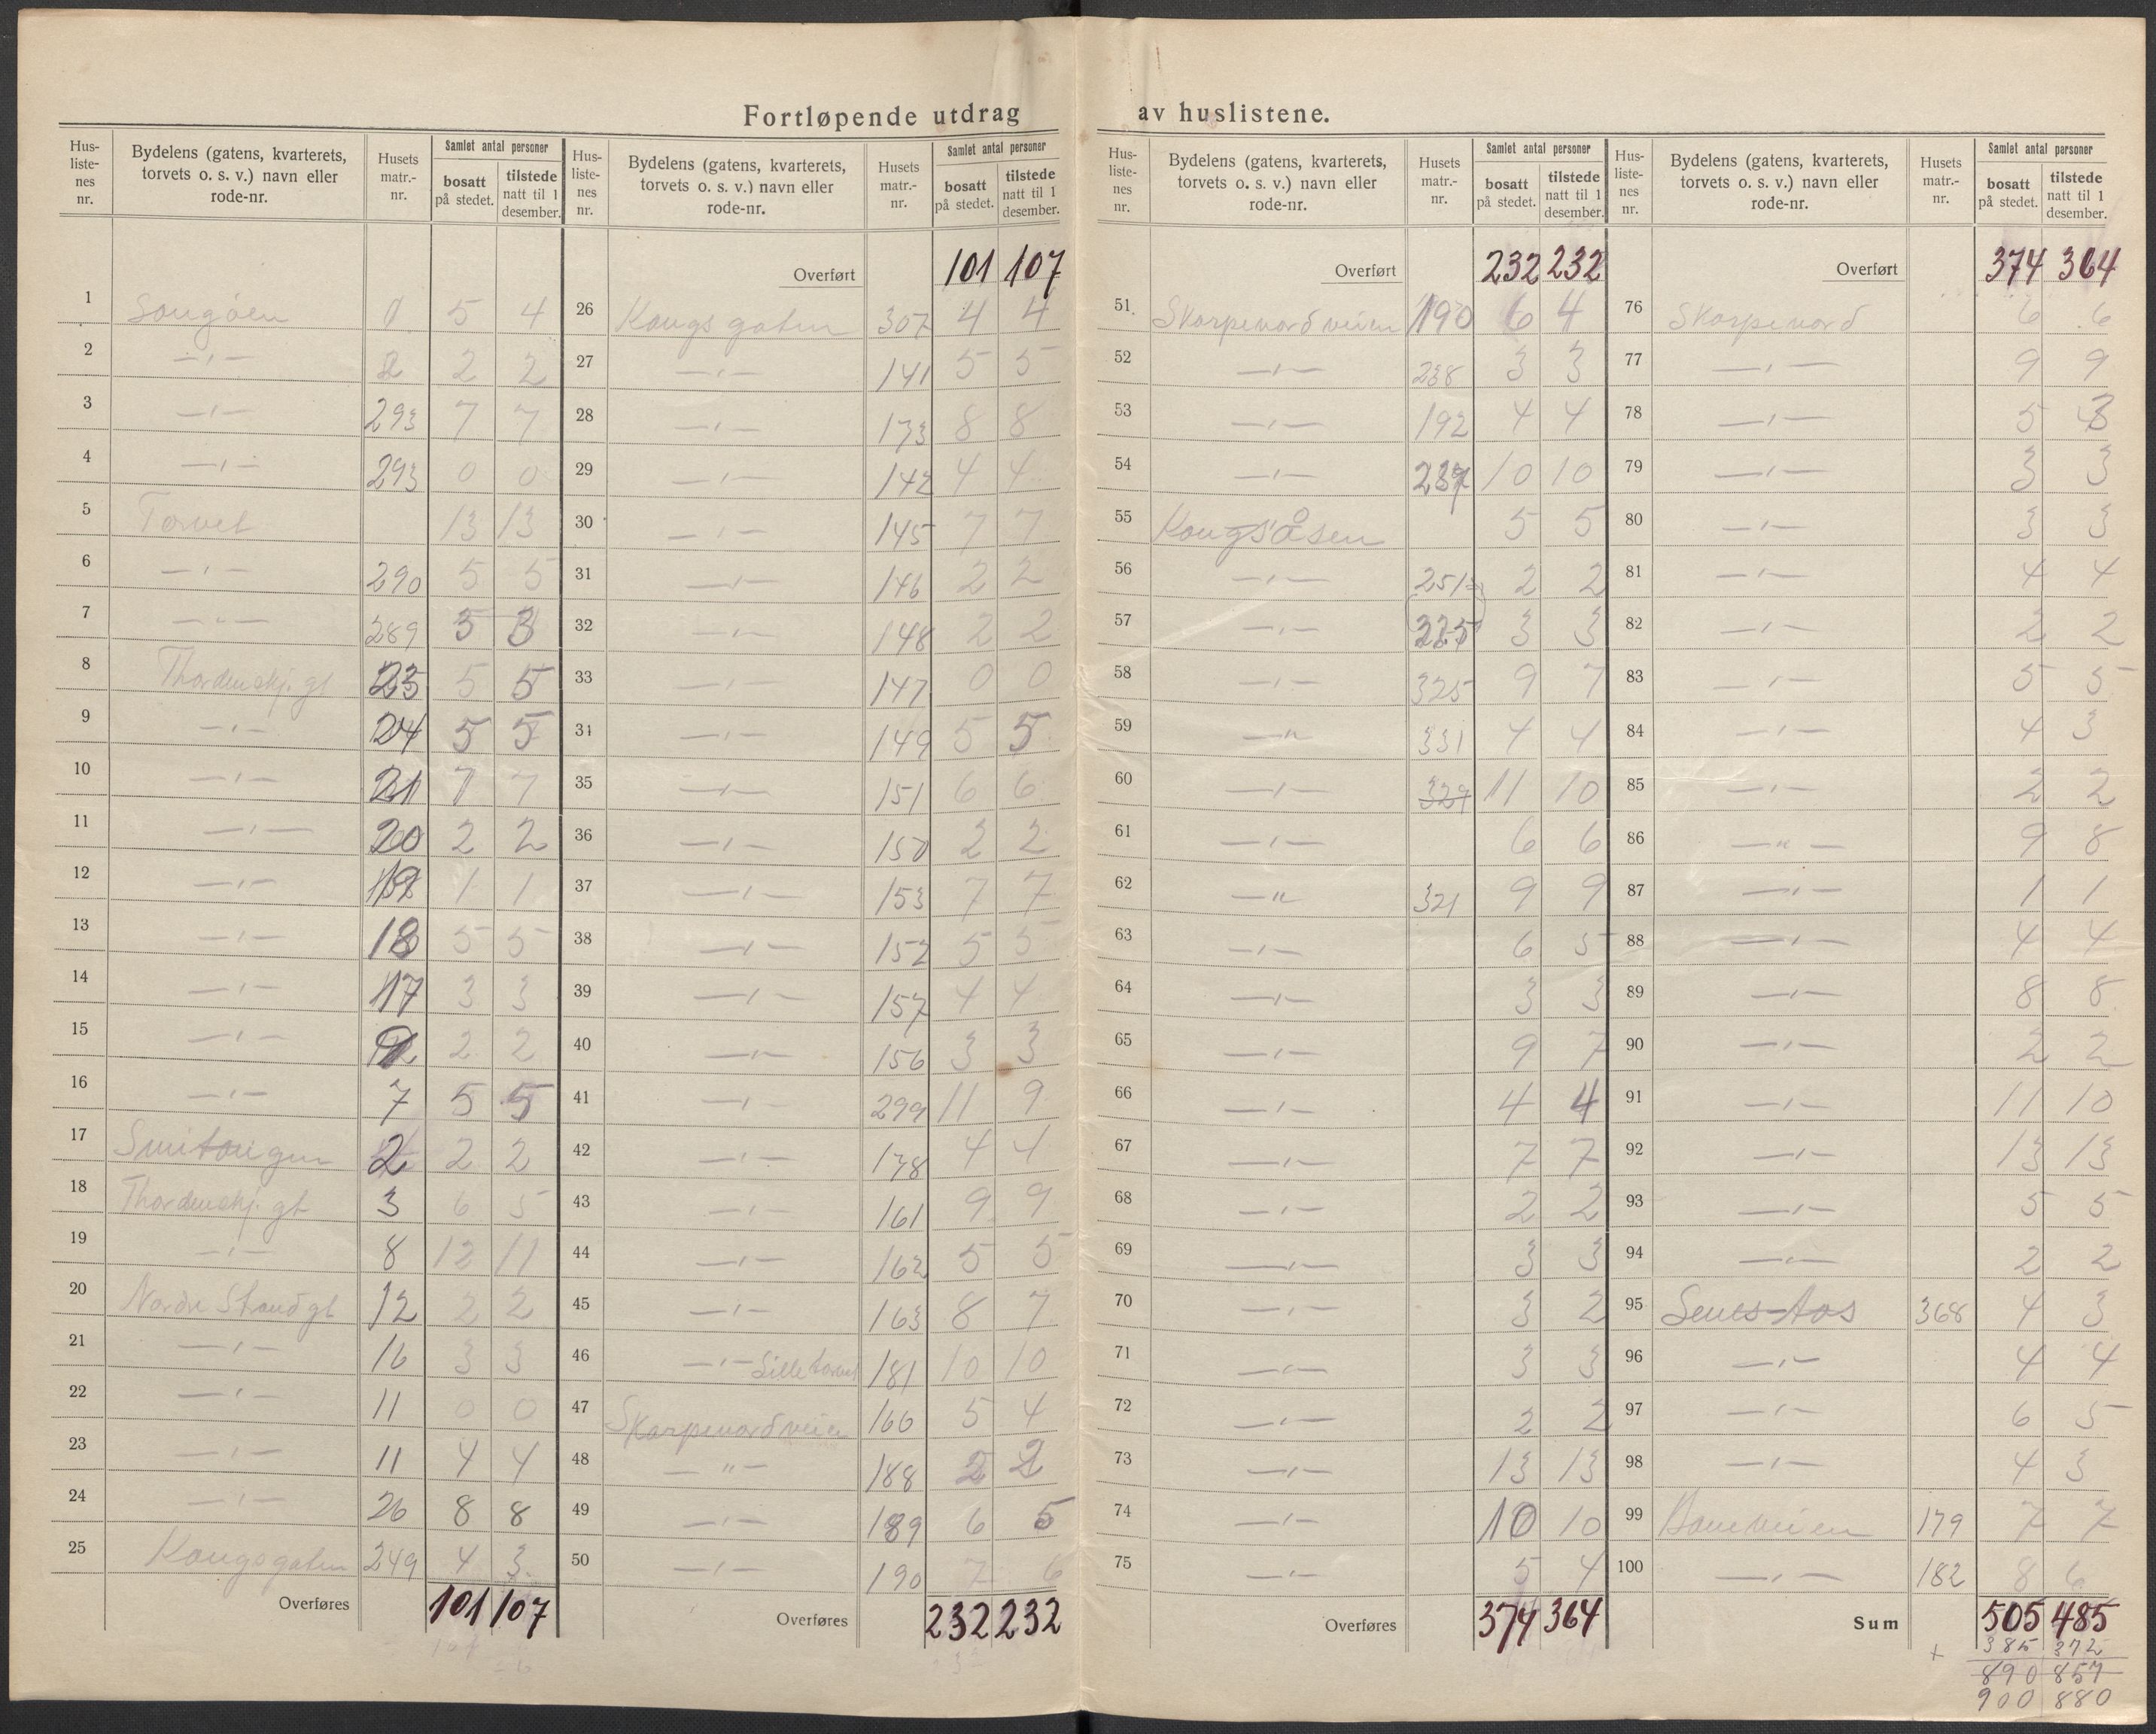 Fortløpende utdrag av huslistene.
Hus-liste-nes nr. | Bydelens (gatens, kvarterets, torvets o. s. v.) navn eller rode-nr. | Husets matr.-nr. | Samlet antal personer bosatt på stedet. | tilstede natt til 1 desember.
1 Langøen 1 5 4
2 —„— 2 2 2
3 —„— 293 7 7
4 —„— 293 0 0
5 Torvet 13 13
6 —„— 290 5 5
7 —„— 289 3
8 Thordenskj. gt 23 5 5
9 —„— 24 5 5
10 —„— 21 7 7
11 —„— 20 2 2
12 —„— 19 1 1
13 —„— 18 5 5
14 —„— 17 3 3
15 —„— 2 2
16 —„— 7 5 5
17 Smitangen 2 2 2
18 Thordenskj. gt 3 6 5
19 —„— 8 12 11
20 Nordre Strandgt 12 2 2
21 —„— 16 3 3
22 —„— 11 0 0
23 —„— 11 4 4
24 —„— 26 8 8
25 Kongsgaten 249 4 3
Overføres 101 107
Hus-liste-nes nr. | Bydelens (gatens, kvarterets, torvets o. s. v.) navn eller rode-nr. | Husets matr.-nr. | Samlet antal personer bosatt på stedet. | tilstede natt til 1 desember.
Overført 101 107
26 Kongsgaten 307 4 4
27 —„— 141 5 5
28 —„— 173 8 8
29 —„— 142 4 4
30 —„— 145 7 7
31 —„— 146 2 2
32 —„— 148 2 2
33 —„— 147 0 0
31 —„— 149 5 5
35 —„— 151 6 6
36 —„— 150 2 2
37 —„— 153 7 7
38 —„— 152 5 5
39 —„— 157 4 4
40 —„— 156 3 3
41 —„— 299 11 9
42 —„— 178 4 4
43 —„— 161 9 9
44 —„— 162 5 5
45 —„— 163 8 7
46 —„— Lilletorvet 181 10 10
47 Skarpenordveien 166 5 4
48 —„— 188 2 2
49 —„— 189 6 5
50 —„— 190 7 6
Overføres 232 232
Hus-liste-nes nr. | Bydelens (gatens, kvarterets, torvets o. s. v.) navn eller rode-nr. | Husets matr.-nr. | Samlet antal personer bosatt på stedet. | tilstede natt til 1 desember.
Overført 232 232
51 Skarpenordveien 190 6 4
52 —„— 238 3 3
53 —„— 192 4 4
54 —„— 237 10 10
55 Kongsåsen 5 5
56 —„— 251 2 2
57 —„— 325 3 3
58 —„— 325 9 7
59 —„— 331 4 4
60 —„— 329 11 10
61 —„— 6 6
62 —„— 321 9 9
63 —„— 6 5
64 —„— 3 3
65 —„— 9 7
66 —„— 4 4
67 —„— 7 7
68 —„— 2 2
69 —„— 3 3
70 —„— 3 2
71 —„— 3 3
72 —„— 2 2
73 —„— 13 13
74 —„— 10 10
75 —„— 5 4
Overføres 374 364
Hus-liste-nes nr. | Bydelens (gatens, kvarterets, torvets o. s. v.) navn eller rode-nr. | Husets matr.-nr. | Samlet antal personer bosatt på stedet. | tilstede natt til 1 desember.
Overført 374 364
76 Skarpenord 6 6
77 —„— 9 9
78 —„— 5 3
79 —„— 3 3
80 —„— 3 3
81 —„— 4 4
82 —„— 2 2
83 —„— 5 5
84 —„— 4 3
85 —„— 2 2
86 —„— 9 8
87 —„— 1 1
88 —„— 4 4
89 —„— 8 8
90 —„— 2 2
91 —„— 11 10
92 —„— 13 13
93 —„— 5 5
94 —„— 2 2
95 368 4 3
96 —„— 4 4
97 —„— 6 5
98 —„— 4 3
99 Baneveien 179 7 7
100 —„— 182 8 6
Sum 505 485
+ 385 372
890 857
900 880